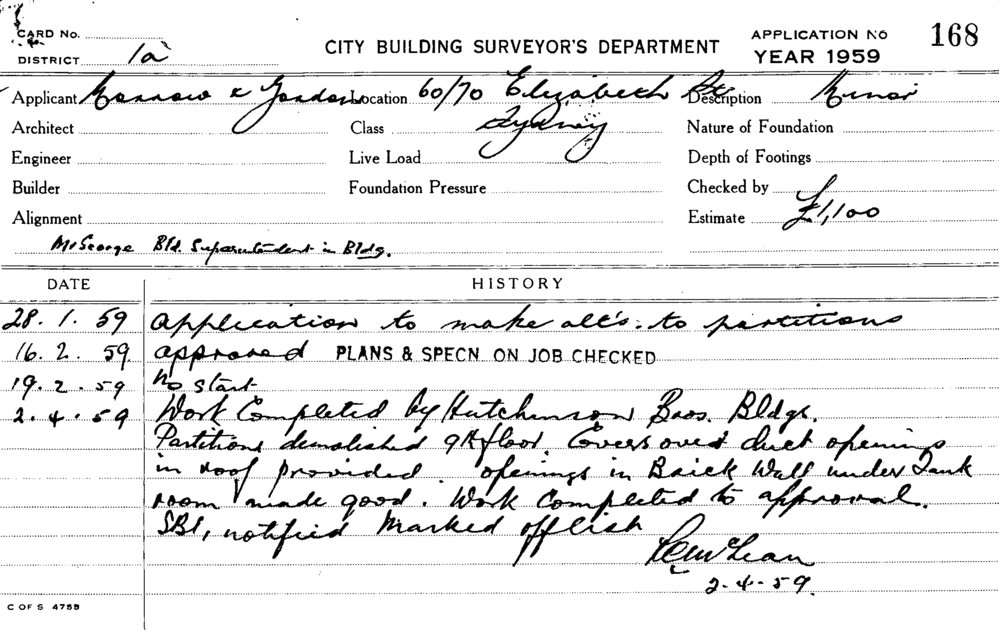 CARD No.
DISTRICT 1a
CITY BUILDING SURVEYOR'S DEPARTMENT
APPLICATION No 168
YEAR 1959
Applicant Morrow & Gordon Location 60/70 Elizabeth St Description Minor
Architect Class Sydney Nature of Foundation
Engineer Live Load Depth of Footings
Builder Foundation Pressure Checked by
Alignment Estimate £1,100
Mr George Bld. Superintendent in Bldg.
DATE HISTORY
28.1.59 Application to make alt's. to partitions
16.2.59. approved PLANS & SPECN ON JOB CHECKED
19.2.59 No start
2.4.59 Work Completed by Hutchinson Bros. Bldgs.
Partitions demolished 9th floor. Covers over duct openings
in roof provided. openings in Brick Wall under Tank
room made good. Work Completed to approval.
SBI, notified Marked off list
McLean
2.4.59.
C OF S 4758